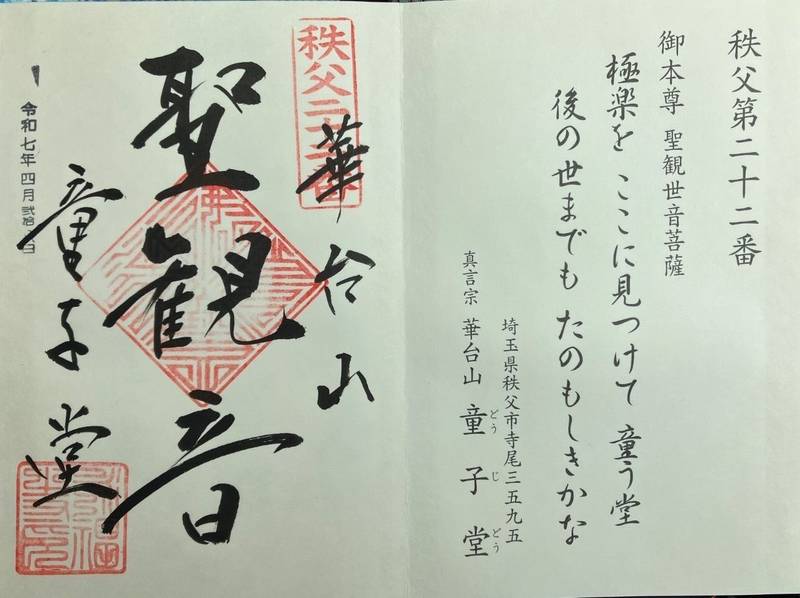 秩父第二十二番
御本尊 聖観世音菩薩
極楽を ここに見つけて 童う堂
後の世までも たのもしきかな
埼玉県秩父市寺尾三五九五
真言宗 華台山 童子堂
どう じ どう
秩父二十二番
華台山
聖観音
童子堂
令和七年四月弐拾